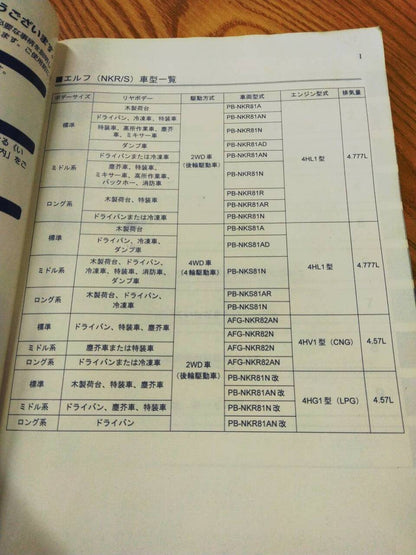 うございます
必要な事柄を
ます。ご使用に
る（い
内」をご
I
■エルフ（NKR/S）車型一覧
ボデーサイズ リヤボデー 駆動方式 車両型式 エンジン型式 排気量
標準 木製荷台 2WD車（後輪駆動車） PB-NKR81A 4HL1型 4.777L
ドライバン、冷凍車、特装車 PB-NKR81AN
特装車、高所作業車、塵芥
車、ミキサー車 PB-NKR81N
ダンプ車 PB-NKR81AD
ミドル系 ドライバンまたは冷凍車 PB-NKR81AN
塵芥車、特装車、
ミキサー車、高所作業車、
バックホー、消防車 PB-NKR81N
ロング系 木製荷台、特装車 PB-NKR81R
PB-NKR81AR
ドライバンまたは冷凍車 PB-NKR81N
標準 木製荷台 4WD車（4輪駆動車） PB-NKS81A 4HL1型 4.777L
ドライバン、冷凍車、
ダンプ車 PB-NKS81AD
ミドル系 木製荷台、ドライバン、
冷凍車、特装車、消防車、
ダンプ車 PB-NKS81N
ロング系 木製荷台、ドライバン、
冷凍車 PB-NKS81AR
PB-NKS81N
標準 ドライバン、特装車、塵芥車 2WD車（後輪駆動車） AFG-NKR82AN 4HV1型（CNG） 4.57L
AFG-NKR82N
ミドル系 塵芥車または特装車 AFG-NKR82N
ロング系 ドライバンまたは冷凍車 AFG-NKR82AN
標準 木製荷台、ドライバン、
塵芥車、特装車 PB-NKR81N改 4HG1型（LPG） 4.57L
PB-NKR81AN改
ミドル系 ドライバン、塵芥車、特装車 PB-NKR81N改
ロング系 ドライバン PB-NKR81AN改